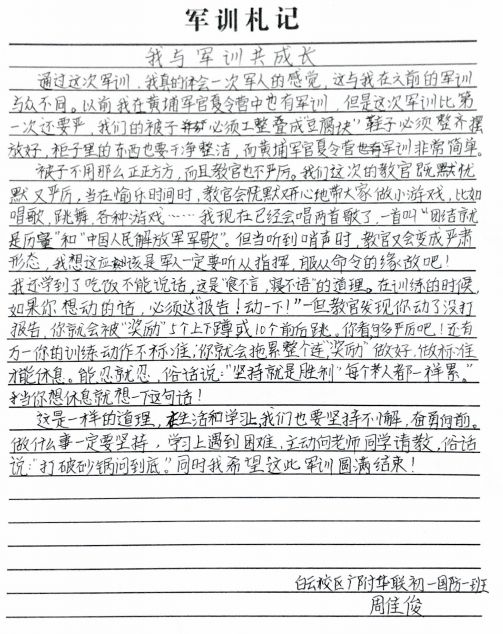 军训札记
我与军训共成长
通过这次军训，我真的体会一次军人的感觉，这与我在之前的军训
与众不同。以前我在黄埔军官夏令营中也有军训，但是这次军训比第
一次还要严，我们的被子必须工整叠成“豆腐块”鞋子必须整齐摆
放好，柜子里的东西也要干净整洁，而黄埔军官夏令营也有军训非常简单。
被子不用那么正正方方，而且教官也不严厉。我们这次的教官既默忧
默又严厉，当在愉乐时间时，教官会忧默又开心地带大家做小游戏，比如
唱歌，跳舞、各种游戏……我现在已经会唱两首歌了，一首叫“团结就
是历量”和“中国人民解放军军歌”。但当听到哨声时，教官又会变成严肃
形态，我想这应该是军人一定要听从指挥，服从命令的缘故吧！
我还学到了吃饭不能说话，这是“食不言，寝不语”的道理。在训练的时候，
如果你想动的话，必须达“报告！动一下！”一但教官发现你动了没打
报告，你就会被“奖励”5个上下蹲或10个前后跳，你看多严厉吧！还有
万一你的训练动作不标准，你就会拖累整个连“奖励”做好，做标准
才能休息。能忍就忍，俗话说：“坚持就是胜利”每个人都一样累。”
当你想休息就想一下这句话！
这是一样的道理，在生活和学习上，我们也要坚持不懈，奋勇向前。
做什么事一定要坚持，学习上遇到困难，主动向老师同学请教，俗话
说：“打破砂锅问到底。”同时我希望这此军训圆满结束！
白云校区广附华联初一国防一班
周佳俊